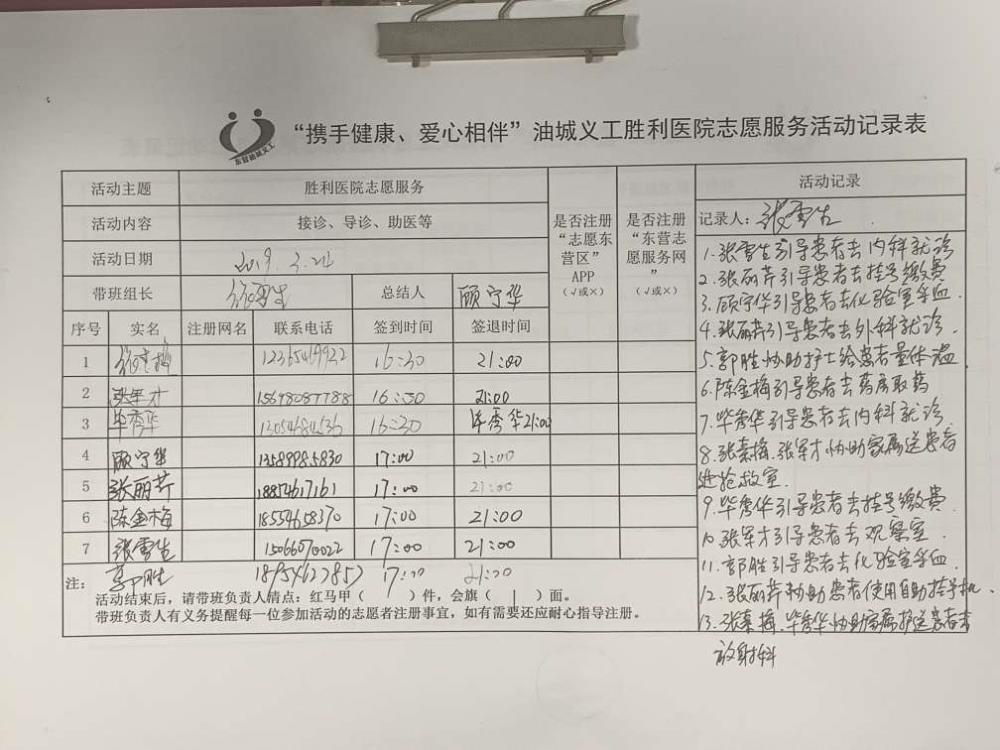 东营油城义工
“携手健康、爱心相伴”油城义工胜利医院志愿服务活动记录表
活动主题 胜利医院志愿服务
活动内容 接诊、导诊、助医等
活动日期 2019.3.22
带班组长 张雪生 总结人 顾守华
是否注册“志愿东营区”APP（√或×）
是否注册“东营志愿服务网”（√或×）
序号 实名 注册网名 联系电话 签到时间 签退时间
1 16:30 21:00
2 张军才 16:30 21:00
3 毕秀华 16:30 毕秀华21:00
4 顾守华 13589985830 17:00 21:00
5 张丽芹 18854617161 17:00 21:00
6 陈金梅 18554658370 17:00 21:00
7 张雪生 15066070022 17:00 21:00
郭胜 17:00 21:00
注：
活动结束后，请带班负责人清点：红马甲（ ）件，会旗（ ）面。
带班负责人有义务提醒每一位参加活动的志愿者注册事宜，如有需要还应耐心指导注册。
活动记录
记录人：张雪生
1.张雪生引导患者去内科就诊
2.张丽芹引导患者去挂号缴费
3.顾守华引导患者去化验室采血.
4.张丽芹引导患者去外科就诊.
5.郭胜协助护士给患者量体温
6.陈金梅引导患者去药房取药
7.毕秀华引导患者去内科就诊
8.张素梅.张军才协助家属送患者
进抢救室.
9.毕秀华引导患者去挂号缴费
10.张军才引导患者去观察室.
11.郭胜引导患者去化验室采血
12.张丽芹协助患者使用自助挂号机.
13.张素梅.毕秀华协助家属护送患者去
放射科